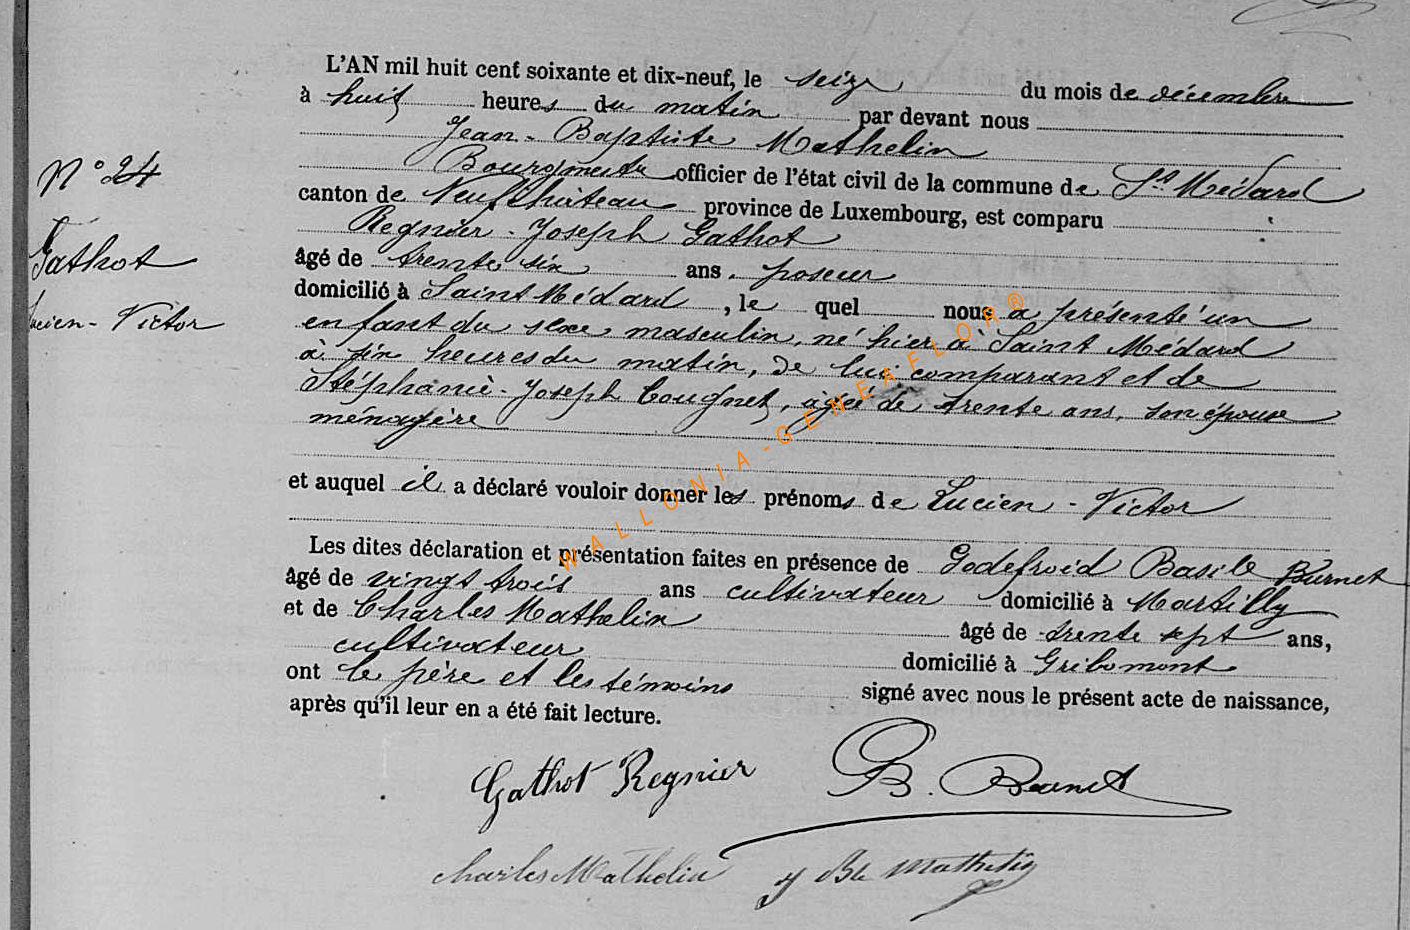 L'AN mil huit cent soixante et dix-neuf, le seize du mois de décembre
à huit heures du matin par devant nous
Jean-Baptiste Mathelin
Bourgmestre officier de l'état civil de la commune de St Médard
canton de Neufchâteau province de Luxembourg, est comparu
Regnier-Joseph Gathot
âgé de trente six ans, poseur
domicilié à Saint Médard, le quel nous a présenté un
enfant du sexe masculin, né hier à Saint Médard
à six heures du matin, de lui comparant et de
Stéphanie-Joseph Cougnet, âgée de trente ans, son épouse
ménagère
et auquel il a déclaré vouloir donner les prénoms de Lucien-Victor
Les dites déclaration et présentation faites en présence de Godefroid Basile Burnet
âgé de vingt trois ans cultivateur domicilié à Martilly
et de Charles Mathelin âgé de trente sept ans,
cultivateur domicilié à Gribomont
ont le père et les témoins signé avec nous le présent acte de naissance,
après qu'il leur en a été fait lecture.
N° 24
Gathot
Lucien-Victor
Gathot Regnier
B. Burnet
Charles Mathelin
J Bte Mathelin
WALLONIA-GENEAFLOR®